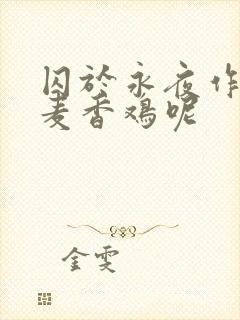 囚於永夜作
麦香鸡呢
金雯